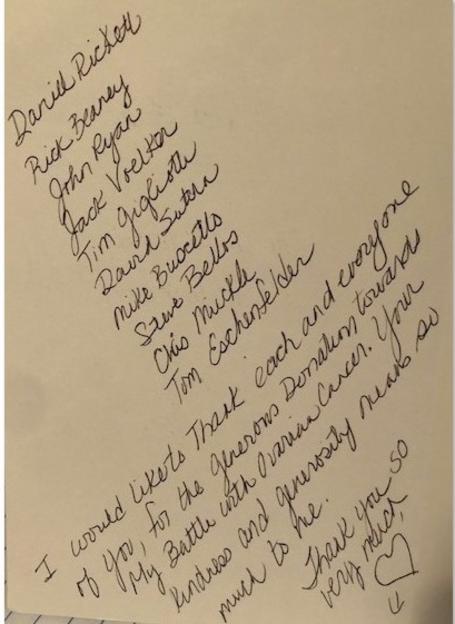 Daniel Rickett
Rick Beaney
John Ryan
Jack Voelker
Tim Gigliotti
David Sutera
Mike Buocello
Steve Bellos
Chis Muckle
Tom Eschenfelder
I would like to Thank each and everyone
of you, for the generous Donation towards
My Battle with Ovarian Cancer. Your
kindness and generosity means so
much to me.
Thank you so
very much,